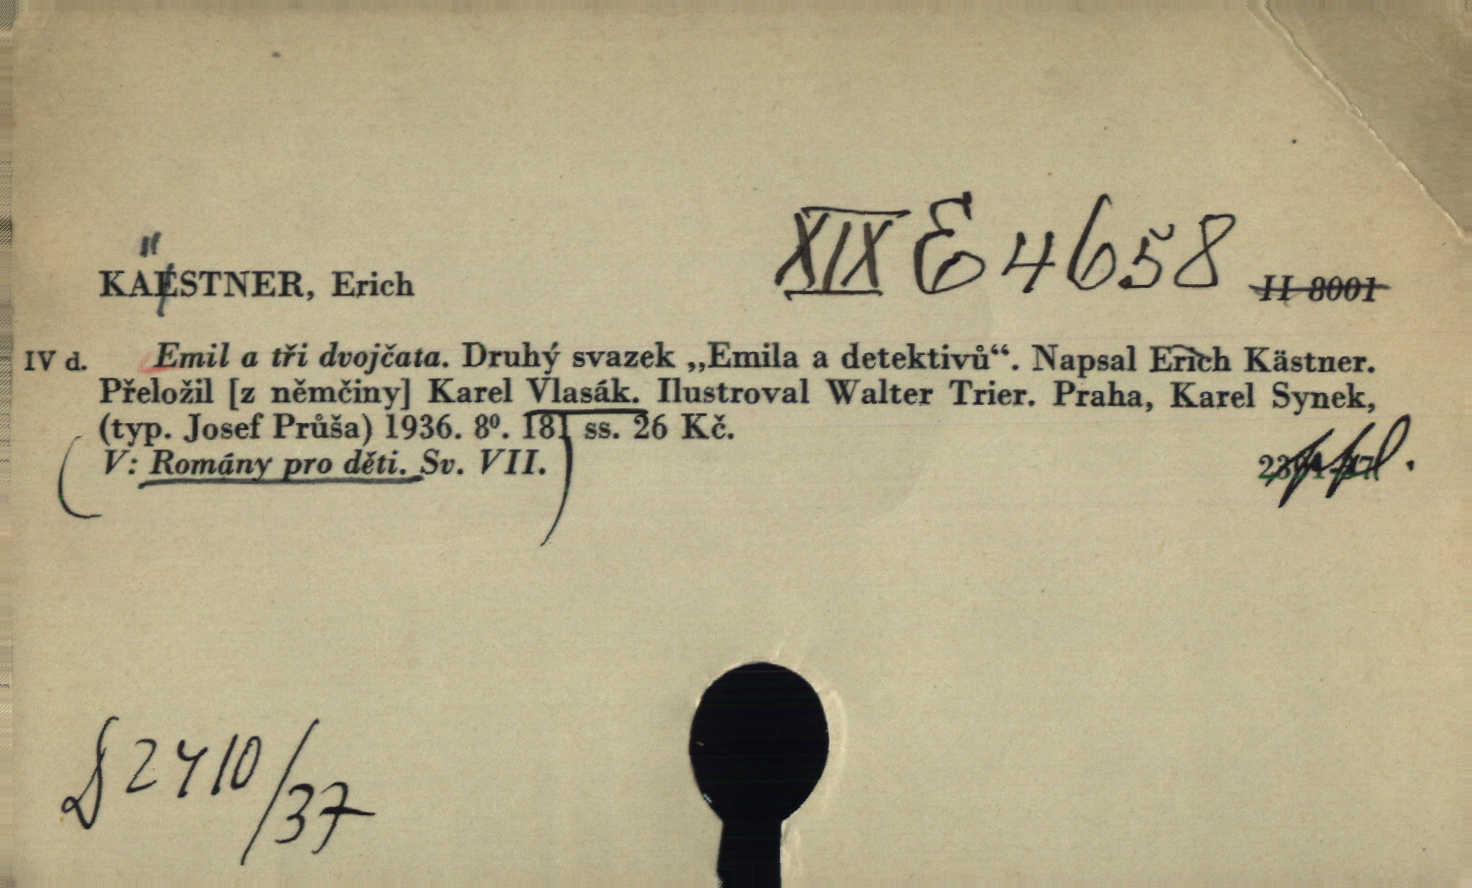 XIX E 4658
KAESTNER, Erich
II 8001
IV d. Emil a tři dvojčata. Druhý svazek „Emila a detektivů“. Napsal Erich Kästner.
Přeložil [z němčiny] Karel Vlasák. Ilustroval Walter Trier. Praha, Karel Synek,
(typ. Josef Průša) 1936. 8⁰. 181 ss. 26 Kč.
(V: Romány pro děti. Sv. VII.)
ppl.
D 2410/37